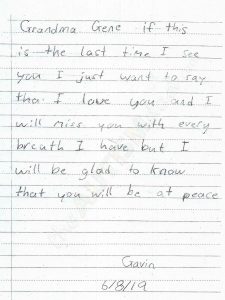 Grandma Gene if this
is the last time I see
you I just want to say
tha. I love you and I
will miss you with every
breath I have but I
will be glad to know
that you will be at peace
Gavin
6/8/19